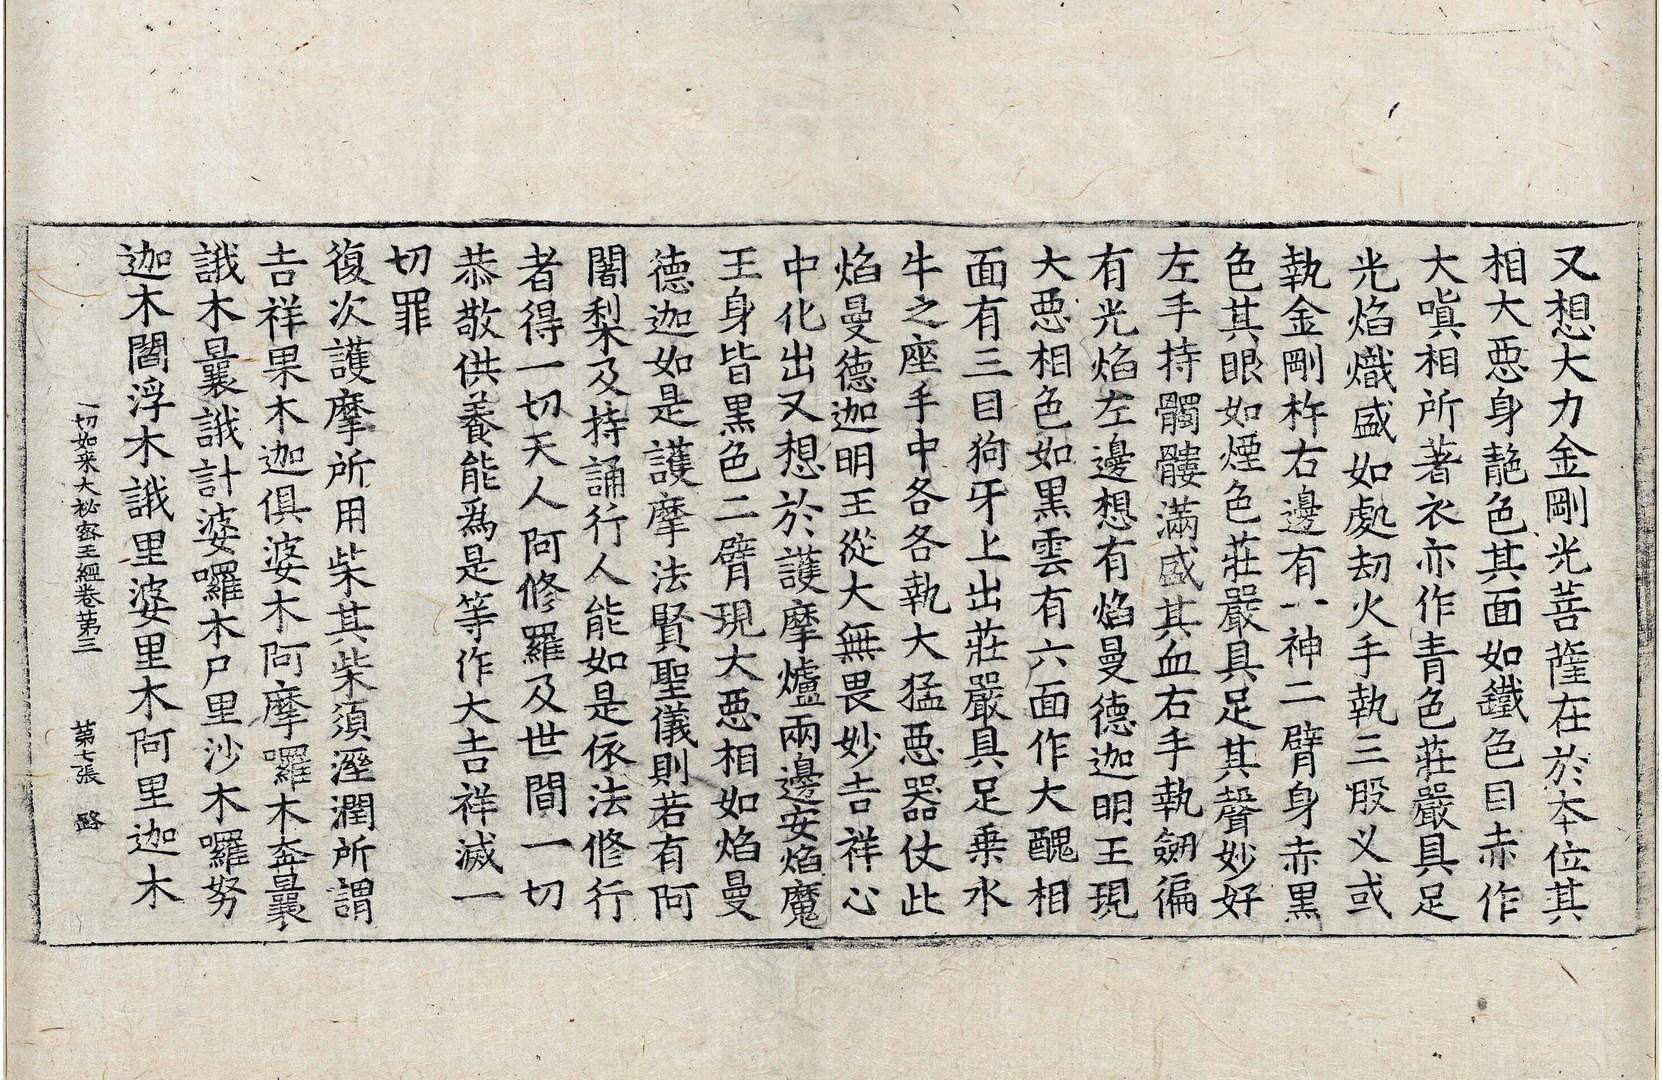 又想大力金剛光菩薩在於本位其
相大惡身靘色其面如鐵色目赤作
大嗔相所著衣亦作青色莊嚴具足
光焰熾盛如處劫火手執三股叉或
執金剛杵右邊有一神二臂身赤黑
色其眼如煙色莊嚴具足其聲妙好
左手持髑髏滿盛其血右手執劒徧
有光焰左邊想有焰曼德迦明王現
大惡相色如黑雲有六面作大醜相
面有三目狗牙上出莊嚴具足乗水
牛之座手中各各執大猛惡器仗此
焰曼德迦明王從大無畏妙吉祥心
中化出又想於護摩爐兩邊安焰魔
王身皆黑色二臂現大惡相如焰曼
德迦如是護摩法賢聖儀則若有阿
闍梨及持誦行人能如是依法修行
者得一切天人阿修羅及世間一切
恭敬供養能為是等作大吉祥滅一
切罪
復次護摩所用柴其柴須溼潤所謂
吉祥果木迦俱婆木阿摩囉木菴曩
誐木曩誐計婆囉木尸里沙木囉努
迦木閻浮木誐里婆里木阿里迦木
一切如来大秘密王經卷苐三 苐七張 𨞕